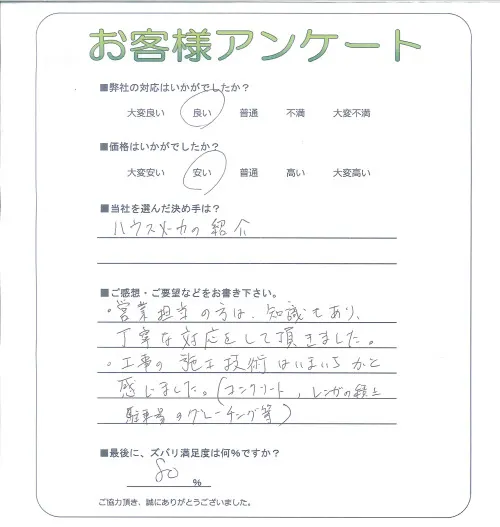 お客様アンケート
■弊社の対応はいかがでしたか？
大変良い 良い 普通 不満 大変不満
■価格はいかがでしたか？
大変安い 安い 普通 高い 大変高い
■当社を選んだ決め手は？
ハウスメーカの紹介
■ご感想・ご要望などをお書き下さい。
・営業担当の方は、知識もあり、
丁寧な対応をして頂きました。
・工事の施工技術はいまいちかと
感じました。(コンクリート，レンガの積上
駐車場のグレーチング等)
■最後に、ズバリ満足度は何%ですか？
80 %
ご協力頂き、誠にありがとうございました。